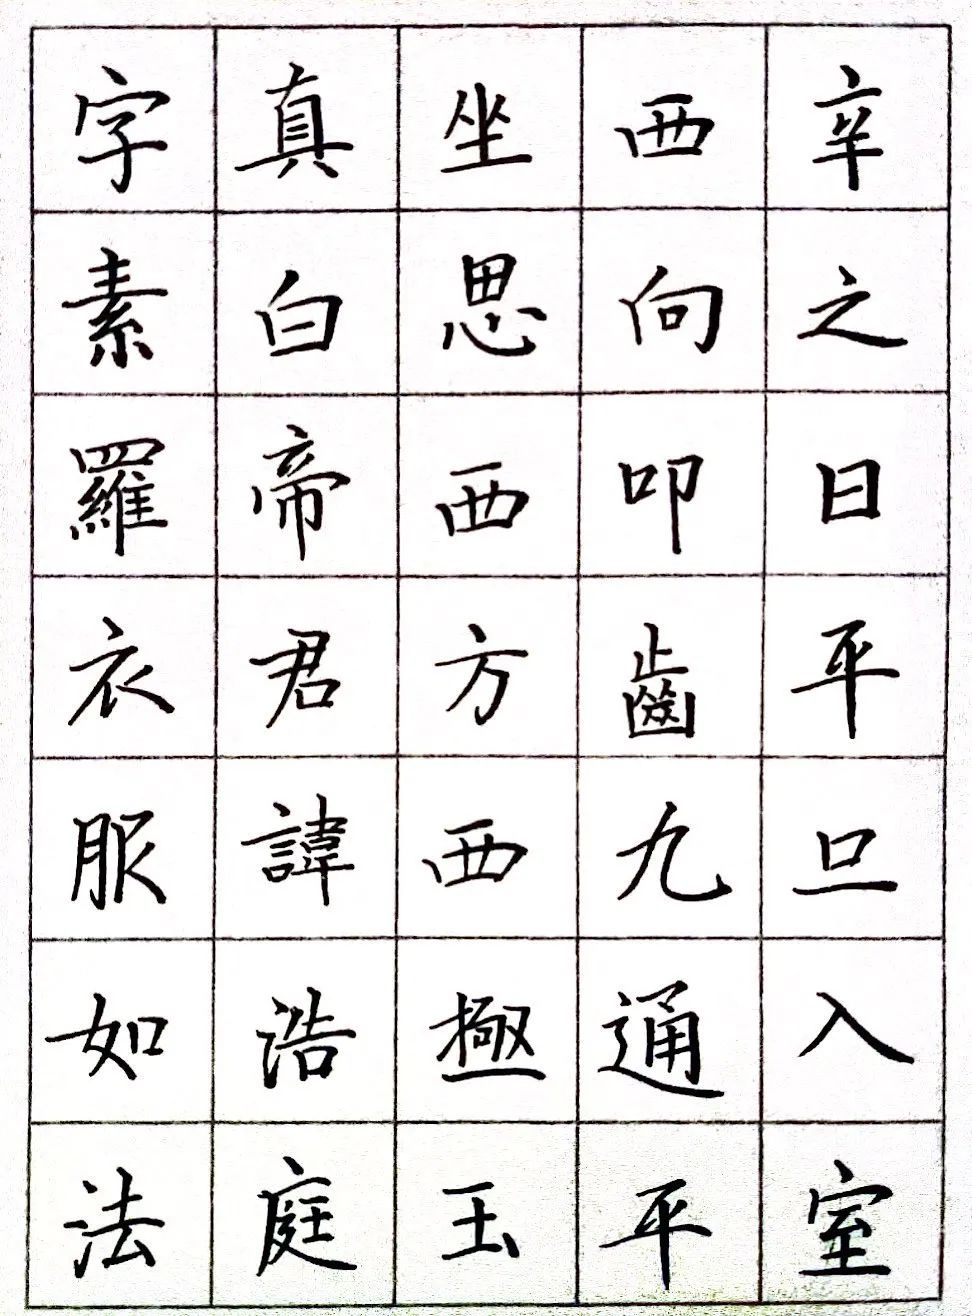 辛之日平旦入室
西向叩齒九通平
坐思西方西極玉
真白帝君諱浩庭
字素羅衣服如法